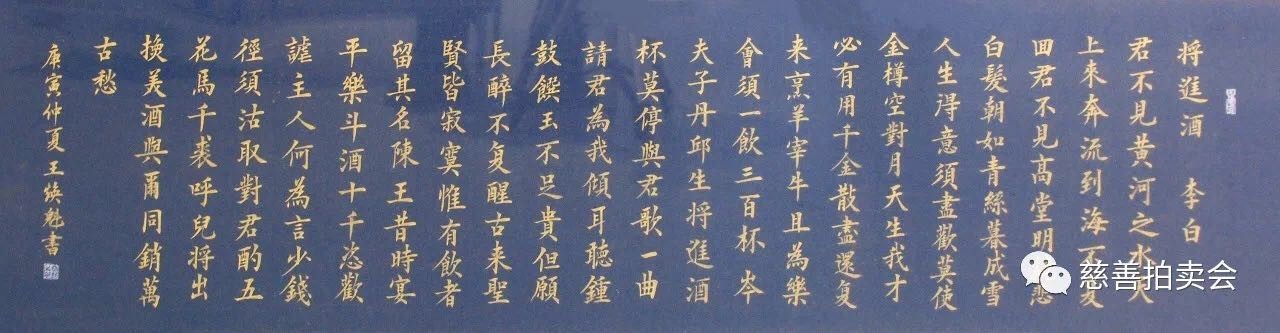 将進酒 李白
君不見黄河之水天
上來奔流到海不复
囬君不見高堂明悲
白髮朝如青絲暮成雪
人生得意須盡歡莫使
金樽空對月天生我才
必有用千金散盡還复
来烹羊宰牛且為樂
會須一飲三百杯岑
夫子丹邱生将進酒
杯莫停與君歌一曲
請君為我傾耳聽鍾
鼓饌玉不足貴但願
長醉不复醒古来聖
賢皆寂寞惟有飲者
留其名陳王昔時宴
平樂斗酒十千恣歡
謔主人何為言少錢
徑須沽取對君酌五
花馬千裘呼兒将出
換美酒與爾同銷萬
古愁
庚寅仲夏王焕魁書
慈善拍卖会